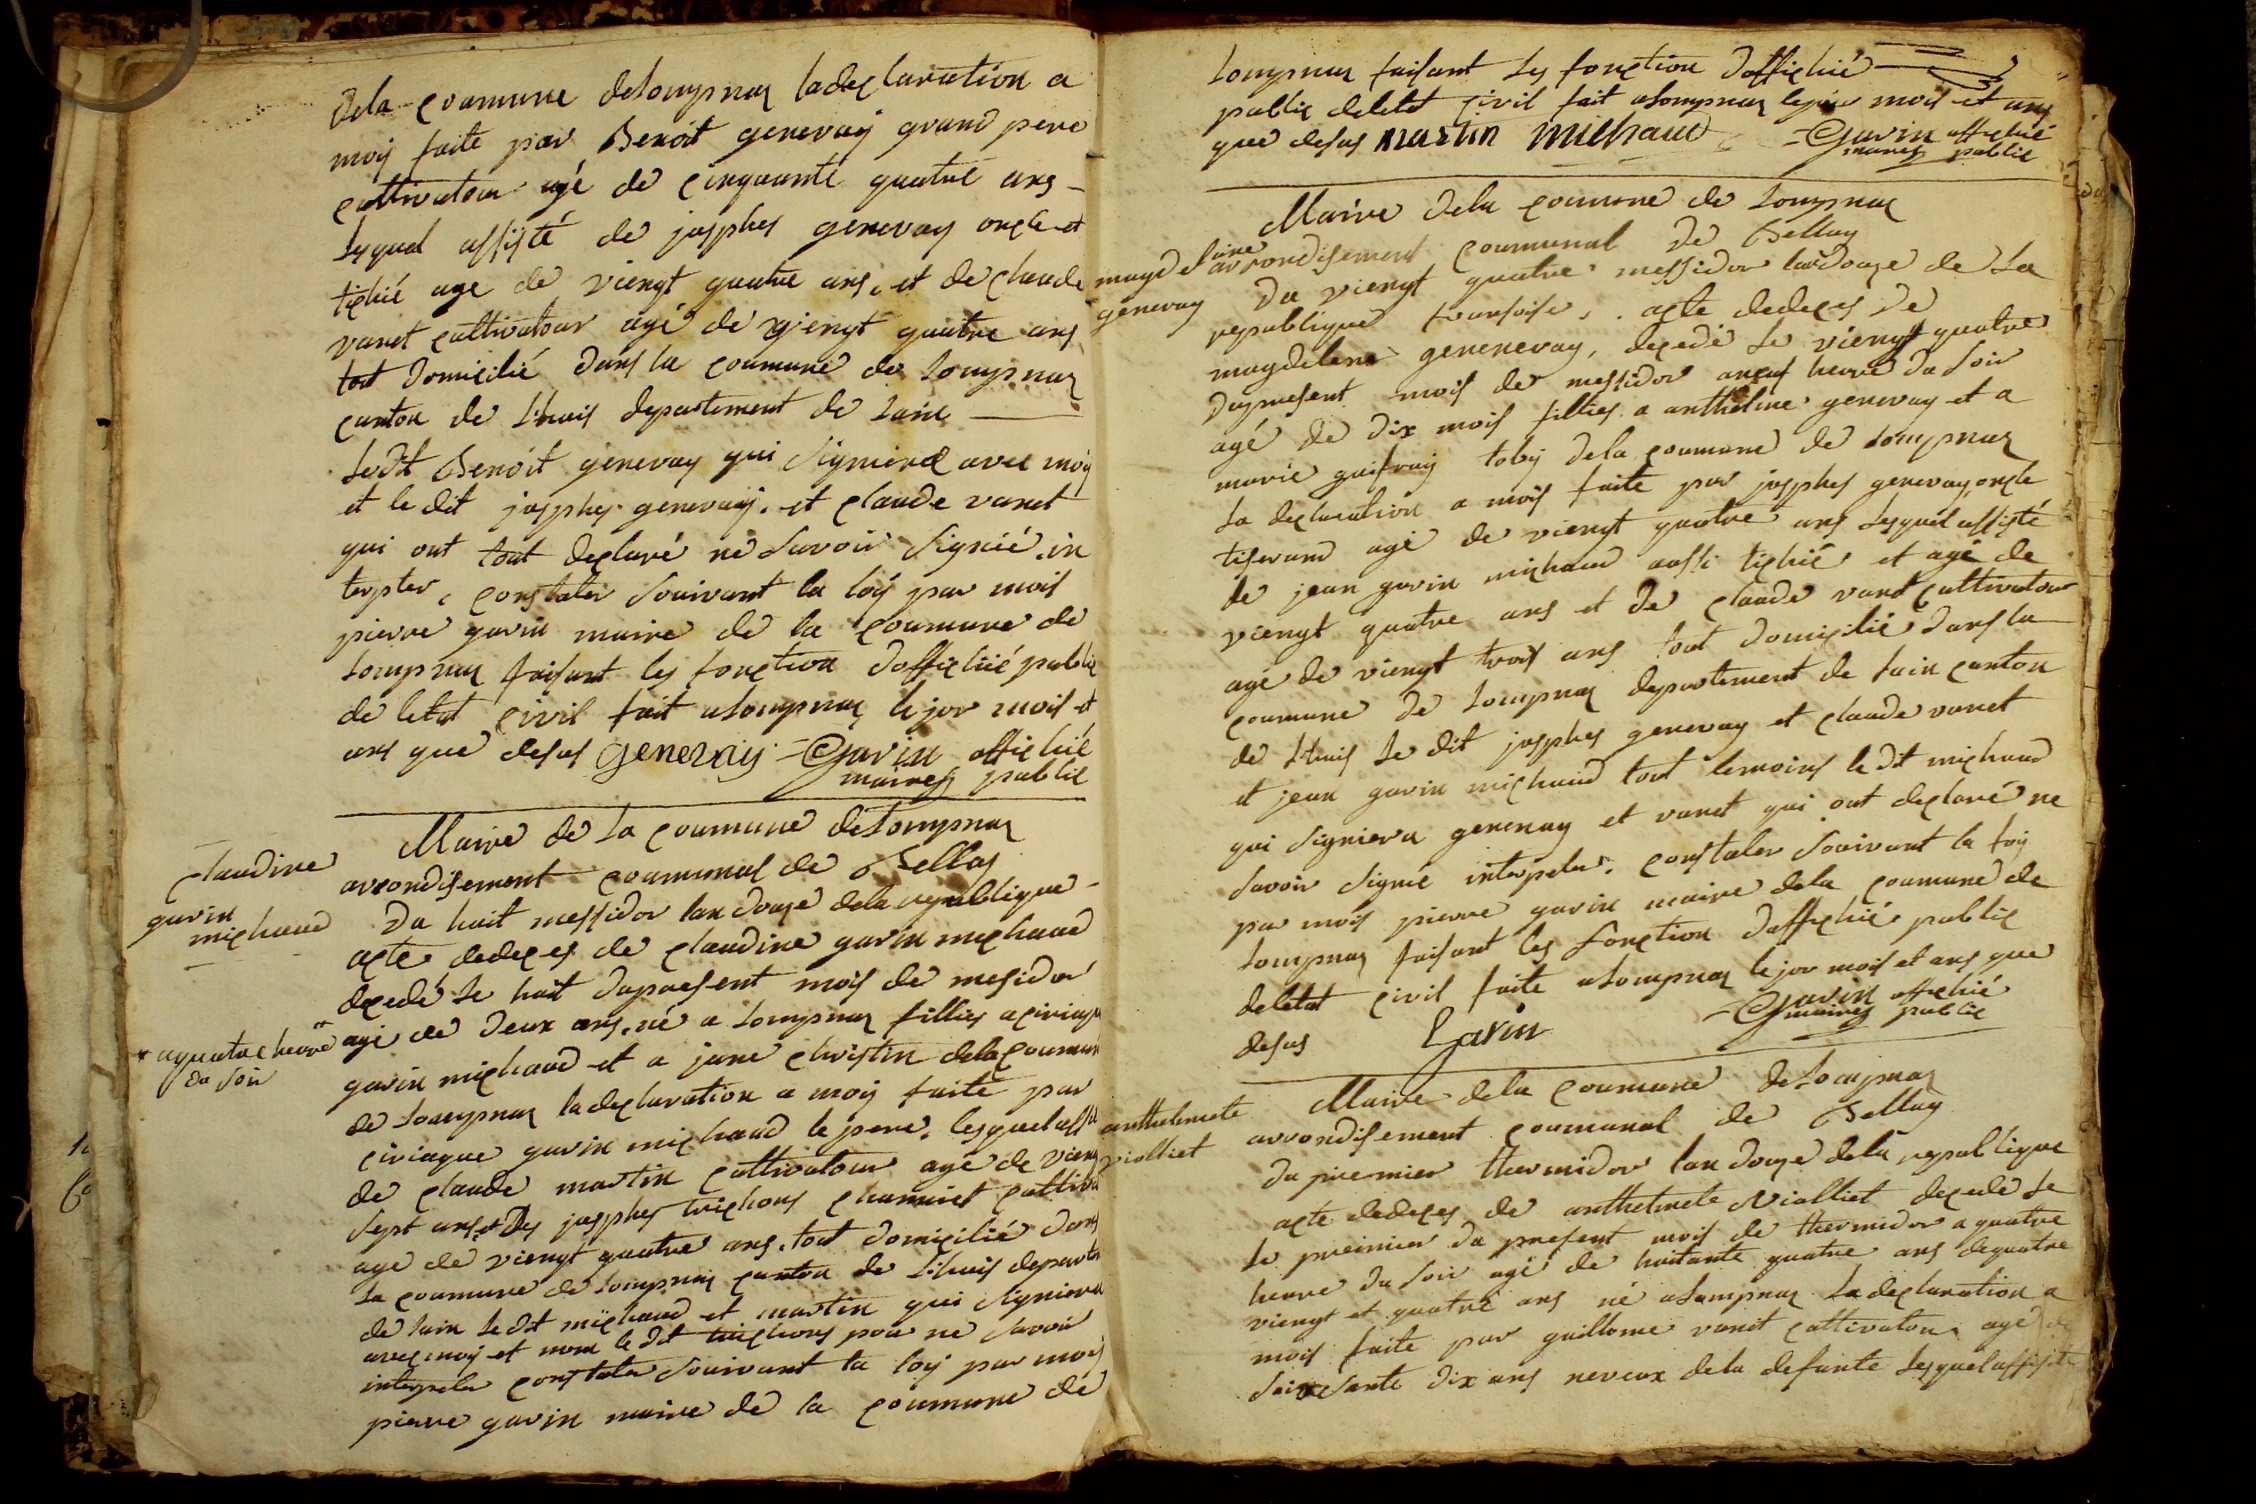 dela coumune delompnaz ladeclaration a
moij faite par Benoit genevaij grand pere
cultivatour agé de cinquante quatre ans
lequel assisté de josphes genevay oncle et
tichié age de viengt quatre ans, et de claude
vanet cultivatour agé de viengt quatre ans
tout domicilié dans la coumune de lompnaz
canton de lhuis departement de lain
ledit Benoit genevay qui signiera avec moij
et le dit josphes genevaij. et claude vanet
qui ont tout declaré ne savoir signié, in
terpter, constater souivant la loij par mois
pierre gavin maire de la coumune de
lompnaz faisant les fonction dofficiié public
de letat civil fait alompnaz le jor mois et
ans que desus genevaij Gavin officiié
maires public
Maire de la coumune delompnaz
arrondisement coumunal de Bellay
claudine
gavin
michaud
Du huit messidor lan douze dela republique
acte dedeces de claudine gavin michaud
decedé le huit dupresent mois de mesidor
* aquatre heure
du soir
agé de deux ans, né a lompnaz fillies aciriaque
gavin michaud et a jane christin dela coumune
de lompnaz ladeclaration a moij faite par
ciriaque gavin michaud le pere, lesquel assisté
de claude martin cultivatour agé de viengt
sept ans et des josphes
age de viengt quatre ans, tout domicilié dans
la coumune de lompnaz canton de lhuis departe
de lain le dit michaud et martin qui signiera
avec moij et nom le dit pour ne savoir
interpeler constater souivant la loij par mois
pierre gavin maire de la coumune de
lompnaz faisant les fonction dofficiié
public deletat civil fait alompnaz lejour mois et ans
que desus martin michaud Gavin officiié
maires public
Maire dela coumune de lompnaz
arrondisement coumunal de Bellay
magdelaine
genevay
Du viengt quatre messidor landouze de la
republique fransoise, acte dedeces de
magdelene genenevay, decedé le viengt quatre
dupresent mois de messidor aneuf heure du soir
agé de dix mois fillies a anthelme genevay et a
marie guifraij tobij dela coumune de lompnaz
la declaration a mois faite par josphes genevay, oncle
tiserand agé de viengt quatre ans lesquel assisté
de jean gavin michaud aussi tichié et agé de
viengt quatre ans et de claude vanet cultivatour
agé de viengt trois ans tout domicilié dans la
coumune de lompnaz departement de lain canton
de lhuis le dit josphes genevay et claude vanet
et jean gavin michaud tout temoins le dit michaud
qui signiera genevay et vanet qui ont declaré ne
savoir signié interpeler, constater souivant la loij
par mois pierre gavin maire dela coumune de
lompnaz faisant les fonction dofficiié public
deletat civil faite alompnaz le jor mois et ans que
desus Gavin Gavin officiié
maires public
Maire dela coumune delompnaz
arrondisement coumunal de Bellay
anthelmete
violliet
du premier thermidor lan douze dela republique
acte dedeces de anthelmete violliet decede le
le preimier du present mois de thermidor a quatre
heure du soir agé de huitante quatre ans dequatre
viengt et quatre ans né alompnaz ladeclaration a
mois faite par guillome vanet cultivatour agé de
soixcsante dix ans neveux dela defunte lesquel assisté